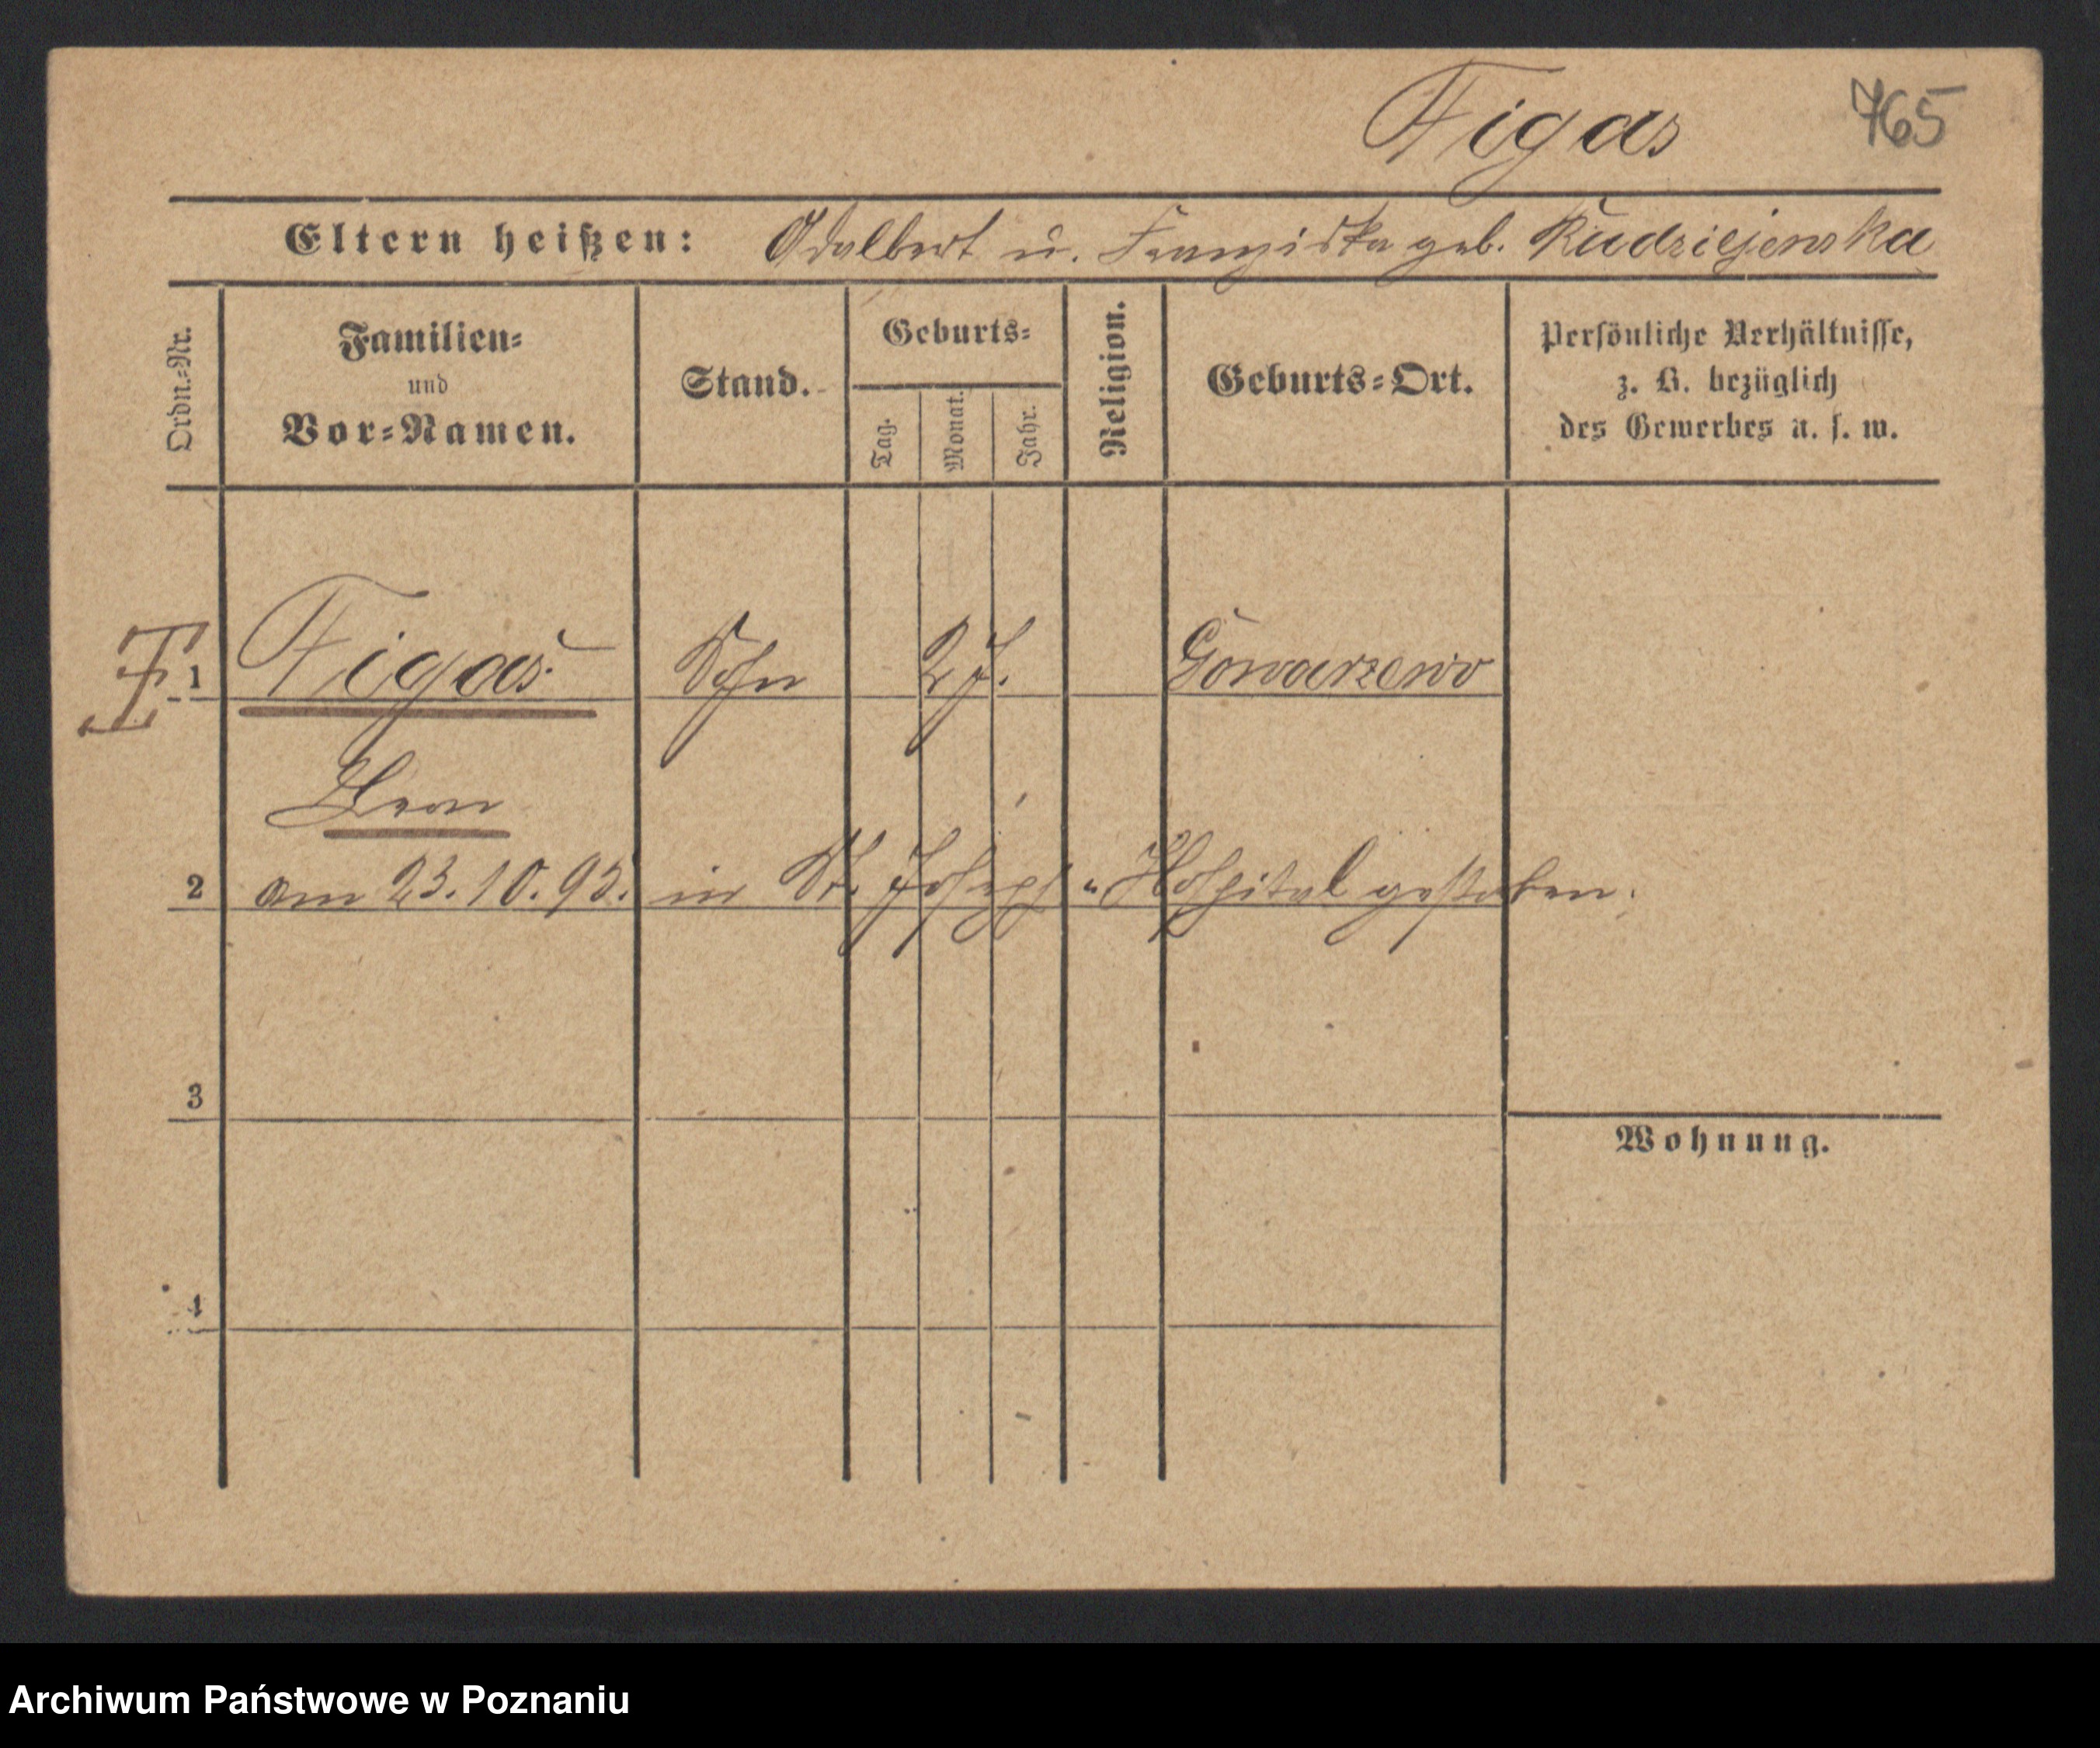 Figas 765
Eltern heißen: Adalbert u. Franziska geb. Rudziejenska
Ordn.-Nr.
Familien-
und
Vor-Namen.
Stand.
Geburts-
Tag.
Monat.
Jahr.
Religion.
Geburts-Ort.
Persönliche Verhältnisse,
z. B. bezüglich
des Gewerbes u. s. w.
1 Figas Sohn 2 J. Gowarzewo
Leon
2 am 23.10.95. in St. Joseph-Hospital gestorben.
3
Wohnung.
4
Archiwum Państwowe w Poznaniu